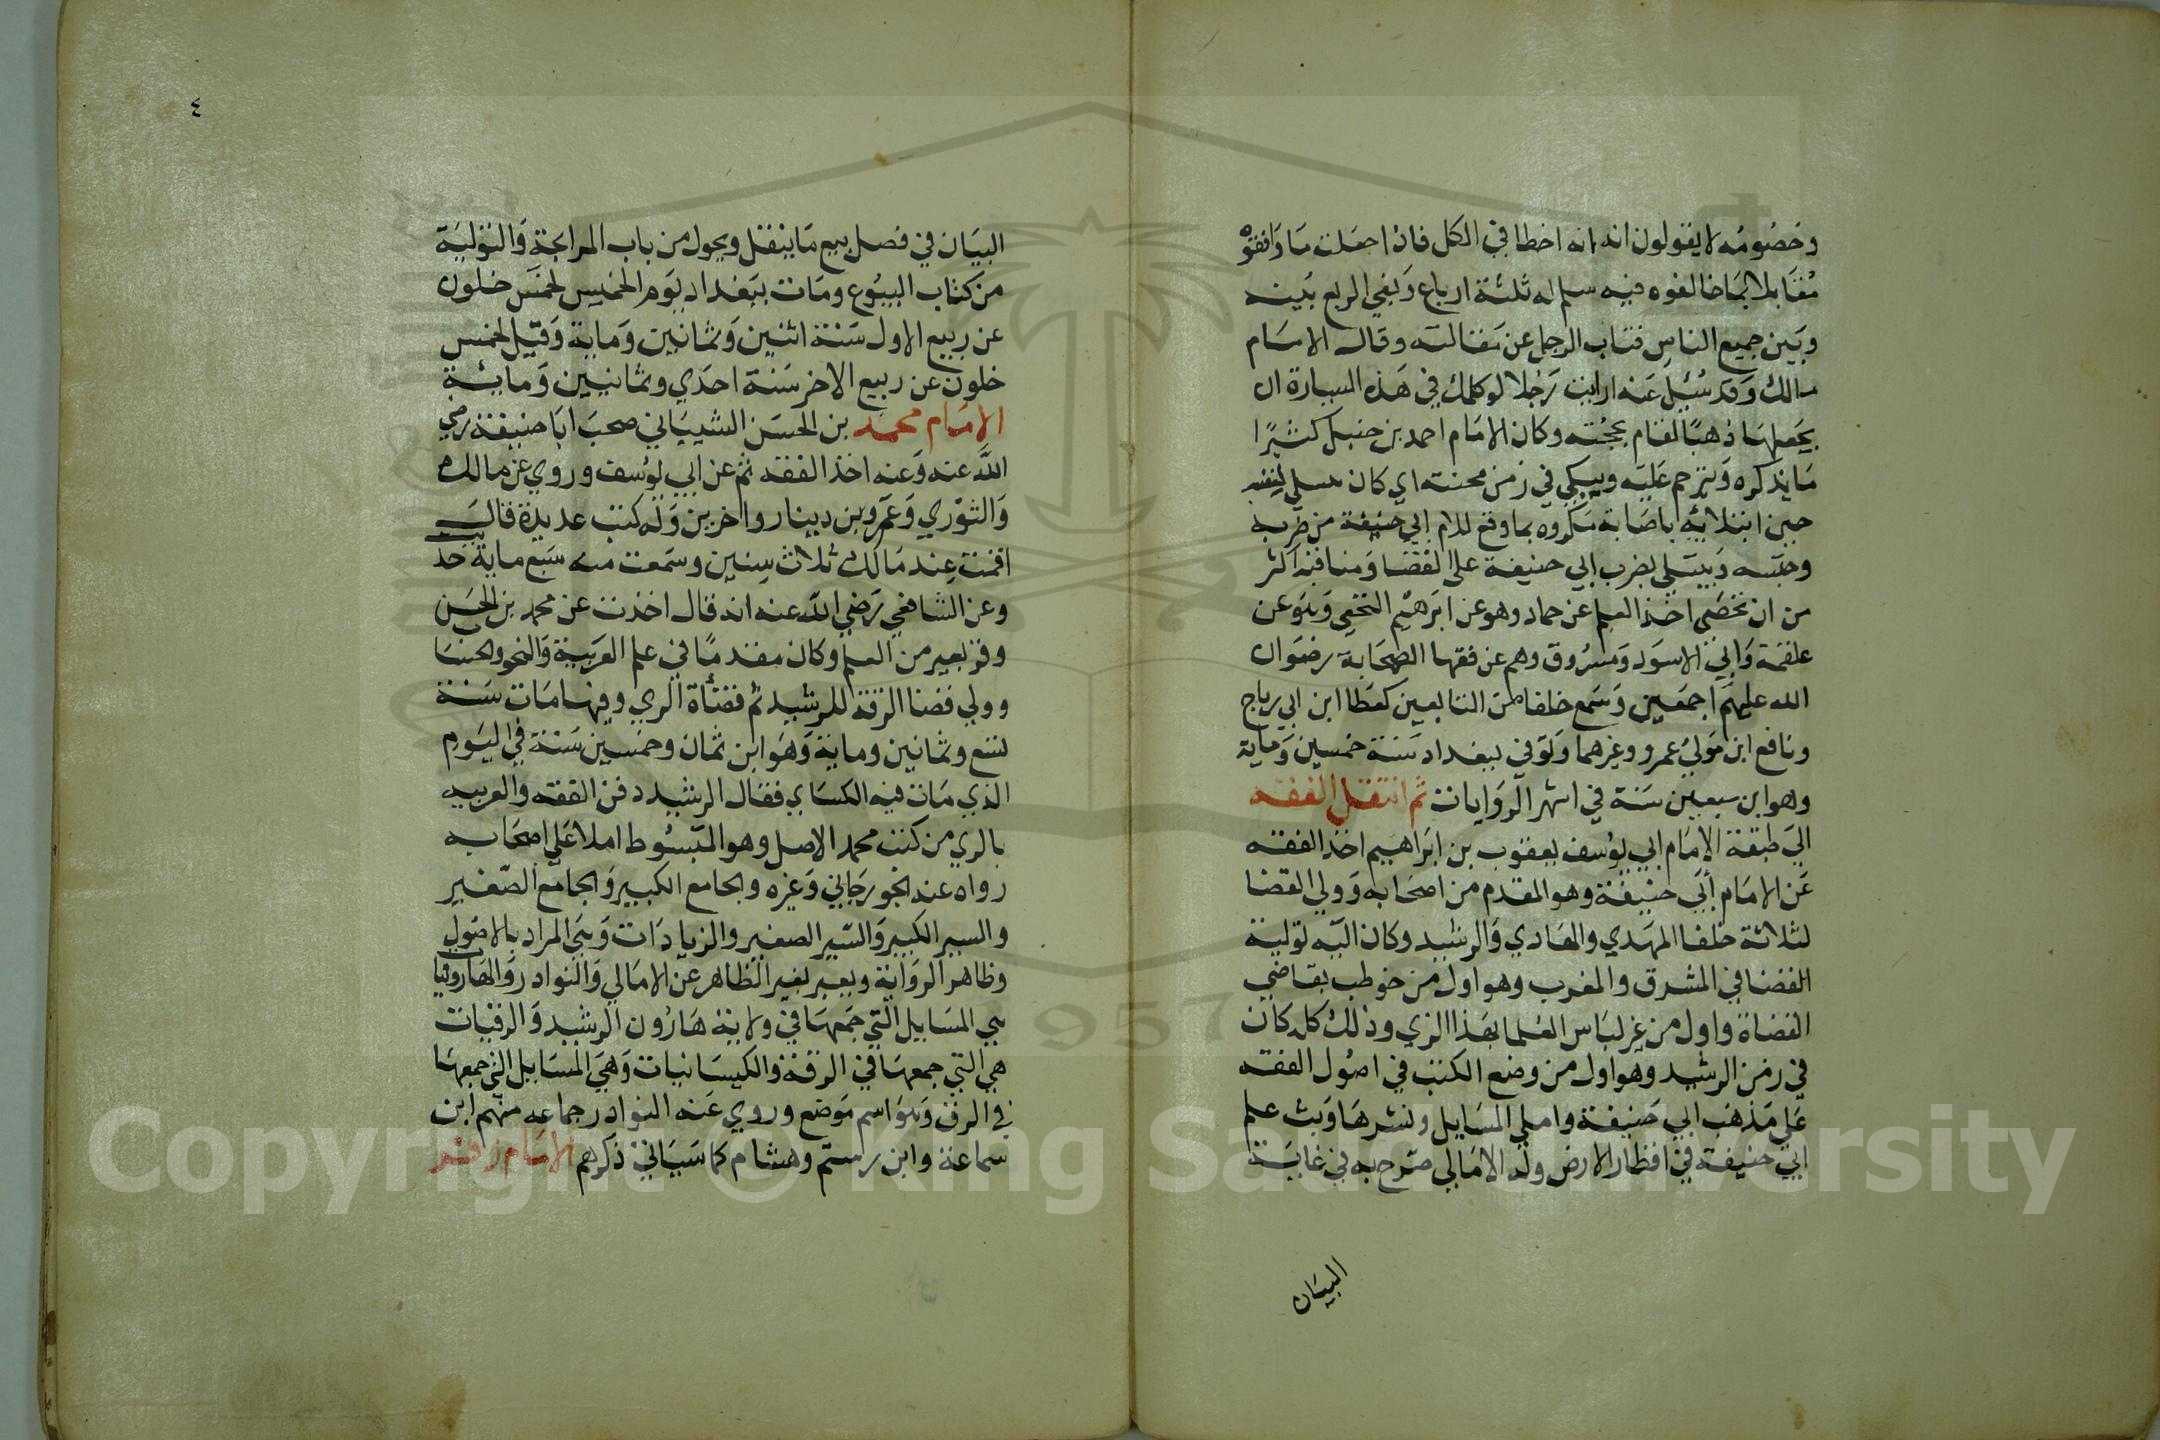 وخصومه لا يقولون انه اخطا في الكل فاذا جعلت ما وافقوه
مقابلا لما خالفوه فيه سلم له ثلثة ارباع وبقي الربع بينه
وبين جميع الناس فتاب الرجل عن مقالته وقال الامام
مالك وقد سئيل عنه ارايت رجلا لو كلمك في هذه السارة ان
يجعلها ذهبا لقام بحجته وكان الامام احمد بن حنبل كثيرا
ما يذكره ويترحم عليه ويبكي في زمن محنته اي كان يسلي لنفسه
حين ابتلائه باصابة مكروه بما وقع للامام ابي حنيفة من ضربه
وحبسه ويتسلي بضرب ابي حنيفة على القضا ومناقبه اكثر
من ان تحصى اخذ العلم عن حماد وهو عن ابرهيم النخعي وهو عن
علقمة وابي الاسود ومسروق وهم عن فقها الصحابة رضوان
الله عليهم اجمعين وسمع خلقا من التابعين كعطا ابن ابي رباح
ونافع ابن مولي عمرو وغيرهما وتوفي ببغداد سنة خمسين وماية
وهو ابن سبعين سنة في اشهر الروايات ثم انتقل الفقه
الي طبقة الامام ابي يوسف يعقوب بن ابراهيم اخذ الفقه
عن الامام ابي حنيفة وهو المقدم من اصحابه وولي القضا
لثلاثة خلفا المهدي والهادي والرشيد وكان اليه تولية
القضا في المشرق والمغرب وهو اول من خوطب بقاضي
القضاة واول من غير لباس العلما بهذا الزي وذلك كله كان
في زمن الرشيد وهو اول من وضع الكتب في اصول الفقه
علي مذهب ابي حنيفة واملي المسايل ونشرها وبث علم
ابي حنيفة في اقطار الارض وله الامالي صرح به في غاية
البيان
٤
البيان في فصل بيع ما ينقل ويحول من باب المرابحة والتولية
من كتاب البيوع ومات ببغداد يوم الخميس لخمس خلون
عن ربيع الاول سنة اثنين وثمانين وماية وقيل لخمس
خلون عن ربيع الاخر سنة احدي وثمانيين ومايئة
الامام محمد بن الحسن الشيباني صحب ابا حنيفة رضي
الله عنه وعنه اخذ الفقه ثم عن ابي يوسف وروي عن مالك
والثوري وعمرو بن دينار واخرين وله كتب عديدة قال
اقمت عند مالك ثلاث سنين وسمعت منه سبع ماية حديث
وعن الشافعي رضي الله عنه انه قال اخذت عن محمد بن الحسن
وقر بعير من العلم وكان مقدما في علم العربية والنحو والحساب
وولي قضا الرقة للرشيد ثم قضاة الري وفيها مات سنة
تسع وثمانين وماية وهو ابن ثمان وخمسين سنة في اليوم
الذي مات فيه الكساي فقال الرشيد دفن الفقه والعربيه
بالري من كتب محمد الاصل وهو المبسوط املا علي اصحابه
رواه عنه الجوزجاني وغيره والجامع الكبير والجامع الصغير
والسير الكبير والسير الصغير والزيادات وهي المراد بالاصول
وظاهر الرواية ويعبر بغير الظاهر عن الامالي والنوادر والهارونيات
هي المسايل التي جمعها في ولاية هارون الرشيد والرقيات
هي التي جمعها في الرقة والكيسانيات وهي المسايل التي جمعها
في الرق وهو اسم موضع وروي عنه النوادر جماعه منهم ابن
سماعة وابن رستم وهشام كما سياتي ذكرهم الامام زفر
Copyright © King Saud University
1957